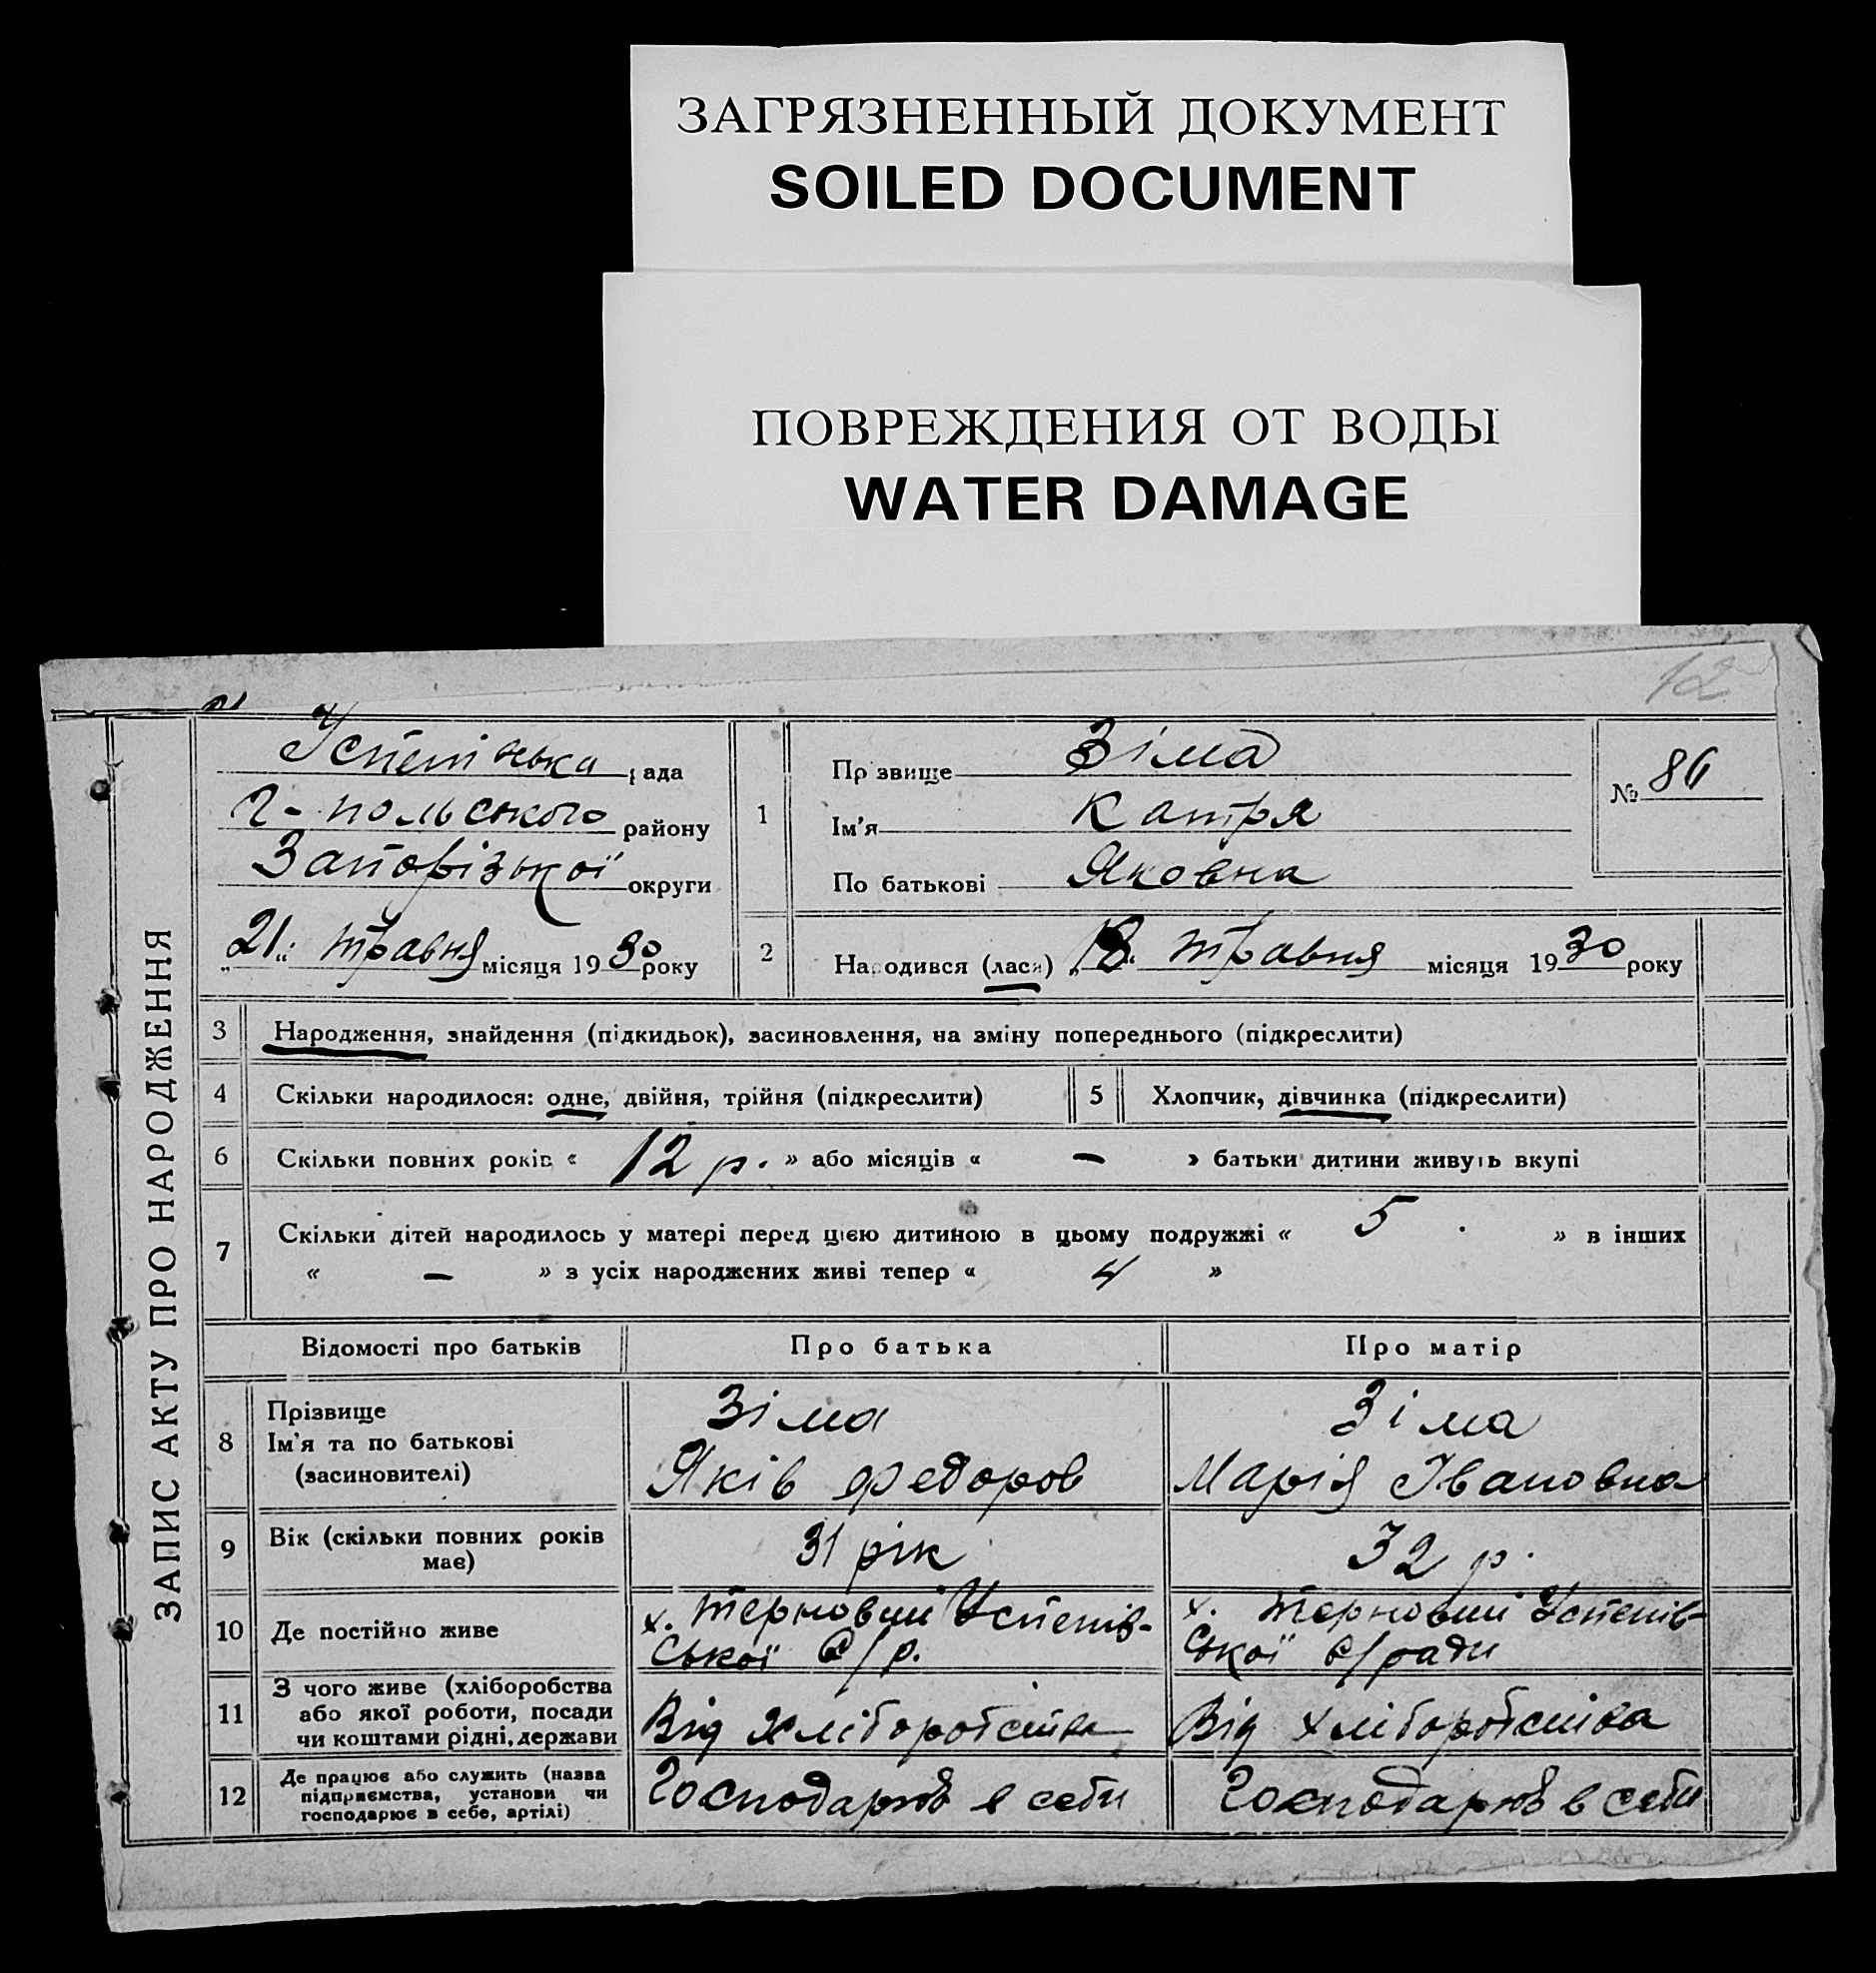 ЗАГРЯЗНЕННЫЙ ДОКУМЕНТ
SOILED DOCUMENT
ПОВРЕЖДЕНИЯ ОТ ВОДЫ
WATER DAMAGE
12
ЗАПИС АКТУ ПРО НАРОДЖЕННЯ
Успенівська рада
Г-польського району
Запорізької округи
„21" травня місяця 1930 року
1
Прізвище Зіма
Ім'я Катря
По батькові Яковна
№ 86
2 Народився (лася) „18" травня місяця 1930 року
3 Народження, знайдення (підкидьок), засиновлення, на зміну попереднього (підкреслити)
4 Скільки народилося: одне, двійня, трійня (підкреслити) 5 Хлопчик, дівчинка (підкреслити)
6 Скільки повних років « 12 р. » або місяців « — » батьки дитини живуть вкупі
7 Скільки дітей народилось у матері перед цією дитиною в цьому подружжі « 5 » в інших
« — » з усіх народжених живі тепер « 4 »
Відомості про батьків Про батька Про матір
8 Прізвище Зіма Зіма
Ім'я та по батькові Яків Федоров Марія Івановна
(засиновителі)
9 Вік (скільки повних років 31 рік 32 р.
має)
10 Де постійно живе х. Терновий Успенів- х. Терновий Успенів-
ської с/р. ської с/ради
11 З чого живе (хліборобства
або якої роботи, посади Від хліборобства Від хліборобства
чи коштами рідні, держави
12 Де працює або служить (назва
підприємства, установи чи Господарює в себи Господарює в себи
господарює в себе, артілі)